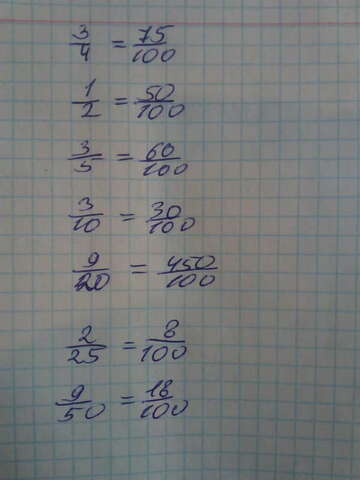 3/4 = 75/100
1/2 = 50/100
3/5 = 60/100
3/10 = 30/100
9/20 = 450/100
2/25 = 8/100
9/50 = 18/100